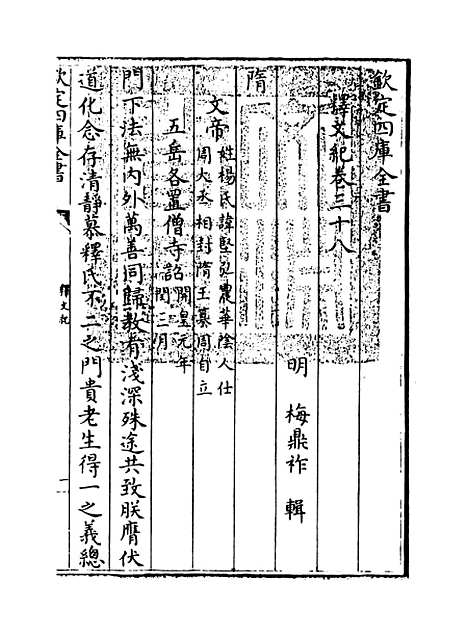 欽定四庫全書
釋文紀卷三十八
明　梅鼎祚　輯
隋
文帝
姓楊氏諱堅弘農華陰人仕
周大丞相封隋王纂周自立
五岳各置僧寺詔
開皇元年
閏三月
門下法無內外萬善同歸教有淺深殊途共致朕膺伏
道化念存清靜慕釋氏不二之門貴老生得一之義總
欽定四庫全書
釋文紀
一